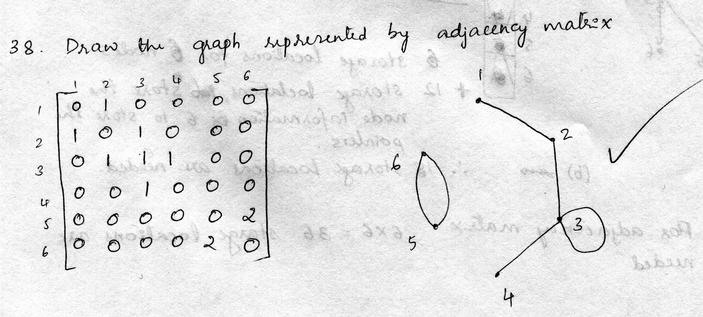 38. Draw the graph represented by adjacency matrix
1 2 3 4 5 6
1 0 1 0 0 0 0
2 1 0 1 0 0 0
3 0 1 1 1 0 0
4 0 0 1 0 0 0
5 0 0 0 0 0 2
6 0 0 0 0 2 0
1
2
6
3
5
4